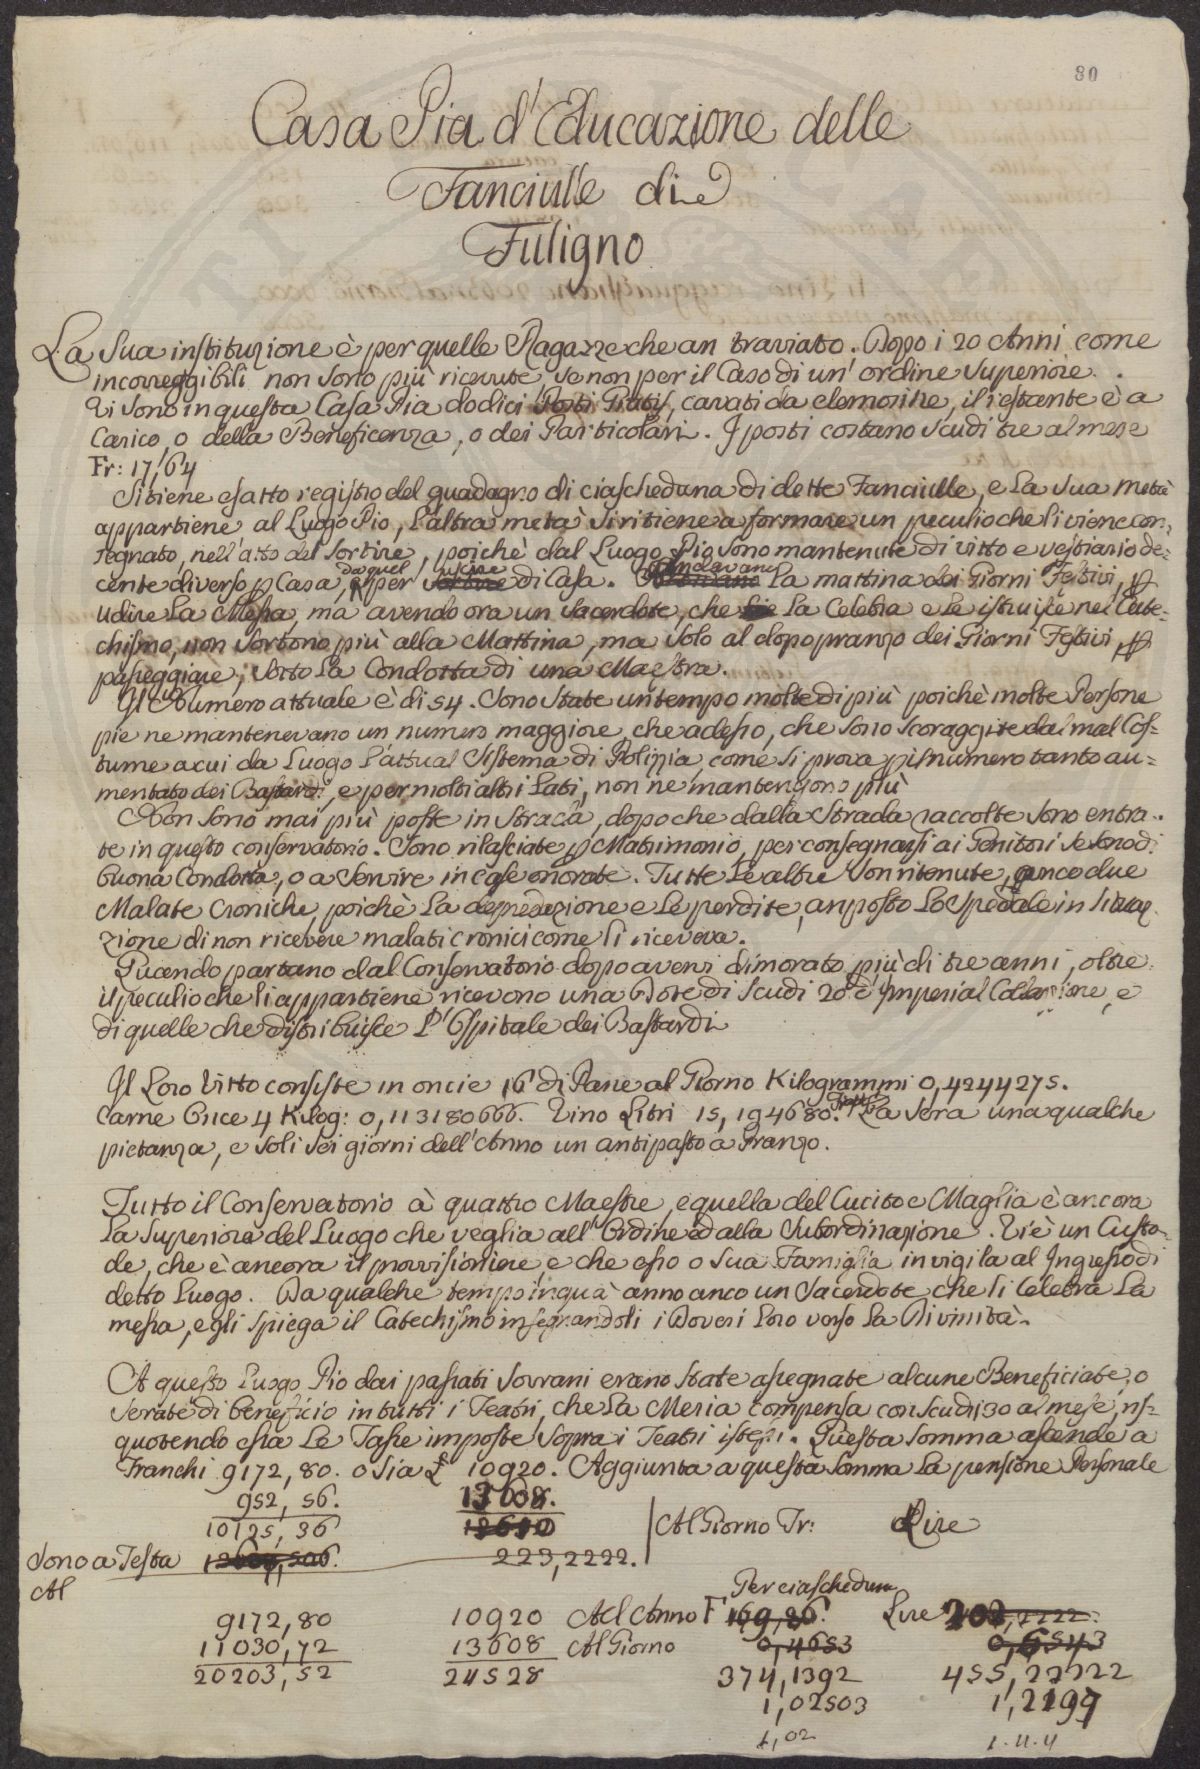 80
Casa Pia d'Educazione delle
Fanciulle di
Fuligno
La Sua instituzione è per quelle Ragazze che an traviato. Dopo i 20 Anni come
incorreggibili non sono più ricevute, se non per il Caso di un' ordine Superiore.
Vi sono in questa Casa Pia dodici Posti Gratis, cavati da elemosine, il restante è a
Carico o della Beneficenza, o dei Particolari. I posti costano scudi tre al mese
Fr: 17,64
Si tiene esatto registro del guadagno di ciascheduna di dette Fanciulle, e La Sua metà
appartiene al Luogo Pio, l'altra metà si ritiene a formare un peculio che li viene con,
segnato, nell'atto del Sortire, poichè dal Luogo Pio sono mantenute di vitto e vestiario de-
da quel uscire andavano
cente diverso p Casa, e per di Casa. La mattina dei Giorni Festivi, p
udire La Messa, ma avendo ora un Sacerdote, che La Celebra e Le istruisce nel Cate-
chismo, non Sortono più alla Mattina, ma Solo al dopo pranzo dei Giorni Festivi p
passeggiare, Sotto La Condotta di una Maestra.
Il Numero attuale è di 54. Sono State un tempo molte di più poichè molte Persone
pie ne mantenevano un numero maggiore, che adesso, che sono scoraggite dal mal Cos-
tume a cui da Luogo L'attual Sistema di Polizia, come si prova p il numero tanto au=
mentato dei Bastardi, e per molti altri Lati, non ne mantengono più
Non sono mai più poste in Strada, dopo che dalla Strada raccolte sono entra-
te in questo conservatorio. Sono rilasciate p Matrimonio, per consegnarsi ai Genitori se sono di
buona Condotta, o a Servire in case onorate. Tutte Le altre Son ritenute, anco due
Malate Croniche, poichè La depredazione e Le perdite, an posto Lo Spedale in situa
zione di non ricevere malati cronici come li riceveva.
Quando partano dal Conservatorio dopo avervi dimorato più di tre anni, oltre
il peculio che li appartiene, ricevono una Dote di Scudi 20 d'Imperial Collazione, e
di quelle che distribuisce L'Ospitale dei Bastardi
Il Loro Vitto consiste in oncie 16 di Pane al Giorno Kilogrammi 0,4244275.
Carne Once 4 Kilog: 0,113180666. Vino Litri 15,194680. La Sera una qualche
pietanza, e Soli Sei giorni dell'Anno un antipasto a Pranzo.
Tutto il Conservatorio à quattro Maestre, e quella del Cucito e Maglia è ancora
La Superiora del Luogo che veglia all'Ordine ed alla Subordinazione. Vi è un Custo-
de, che è ancora il provvisioniere e che esso o Sua Famiglia invigila al Ingresso di
detto Luogo. Da qualche tempo in quà anno anco un Sacerdote, che li Celebra La
messa, e gli spiega il Catechismo insegnandoli i Doveri Loro verso La Divinità.
A questo Luogo Pio dai passati Sovrani erano State assegnate alcune Beneficiate, o
Serate di beneficio in tutti i Teatri, che La Meria compensa con Scudi 130 al mese, ris=
quotendo essa Le Tasse imposte Sopra i Teatri istessi. Questa Somma ascende a
Franchi 9172,80. o Sia £ 10920. Aggiunta a questa Somma La pensione Personale
952,56. 13608.
10125,36 Al Giorno Fr: Lire
Sono a Testa 223,2222.
Al
Per ciascheduna
9172,80 10920 Al Anno F 169,86. Lire 202,2222.
11030,72 13608 Al Giorno 0,4653 0,6543
20203,52 24528 374,1392 455,22222
1,02503 1,2199
1,02 1.4.4